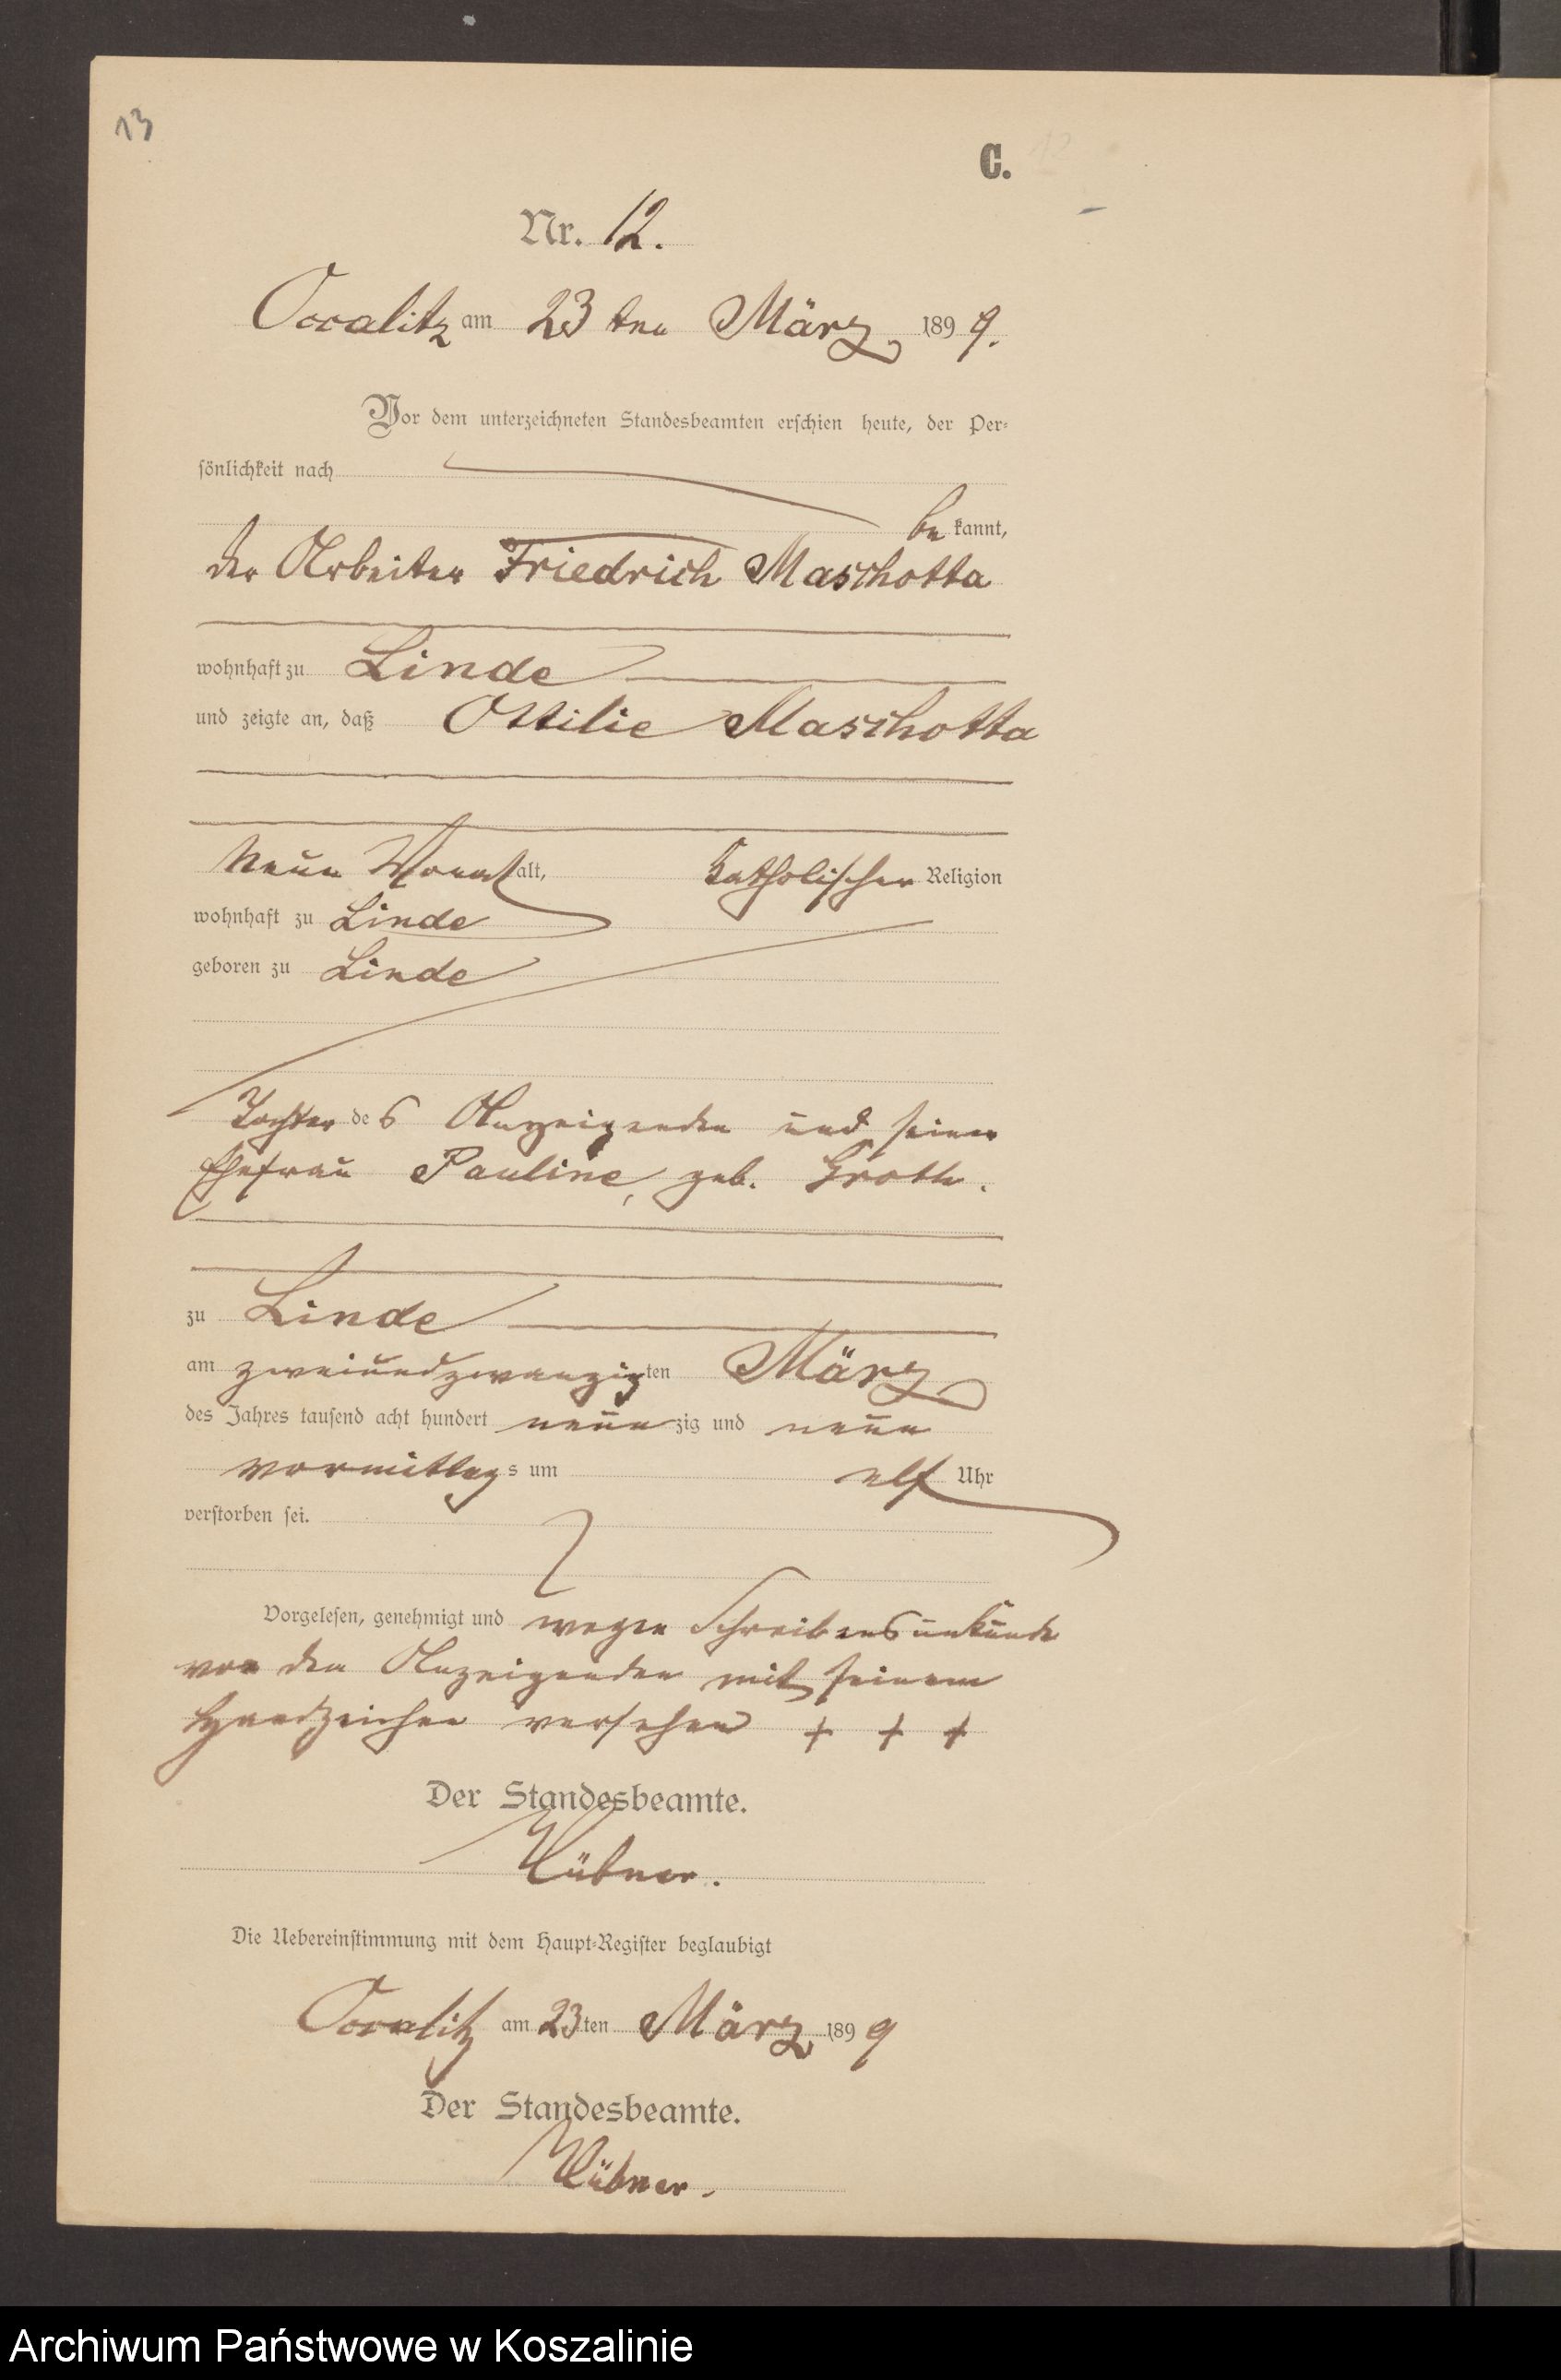 13
C.
Nr. 12.
Occalitz am 23 ten März 1899.
Vor dem unterzeichneten Standesbeamten erschien heute, der Per-
sönlichkeit nach
be kannt,
der Arbeiter Friedrich Maschotta
wohnhaft zu Linde
und zeigte an, daß Ottilie Maschotta
neun Monat alt, katholischer Religion
wohnhaft zu Linde
geboren zu Linde
Tochter des Anzeigenden und seiner
Ehefrau Pauline, geb. Groth.
zu Linde
am zweiundzwanzigten März
des Jahres tausend acht hundert neunzig und neun
vormittags um elf Uhr
verstorben sei.
Vorgelesen, genehmigt und wegen Schreibensunkunde
von den Anzeigenden mit seinem
Handzeichen versehen + + +
Der Standesbeamte.
Hübner.
Die Uebereinstimmung mit dem Haupt-Register beglaubigt
Occalitz am 23ten März 1899
Der Standesbeamte.
Hübner.
Archiwum Państwowe w Koszalinie